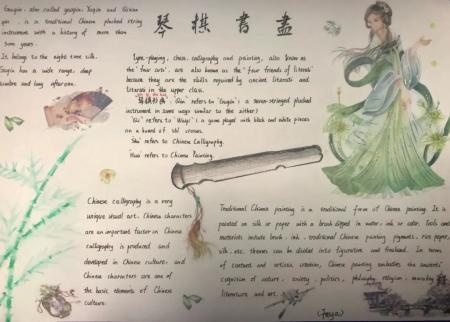 琴棋書畫
Guqin, also called yaoqin, Yuqin and Qixian
qin, is a traditional Chinese plucked string
instrument with a history of more than
years.
It belongs to the eight tone silk.
Guqin has a wide range, deep
timbre and long aftertone.
Lyre-playing, chess, calligraphy and painting, also know as
the "four arts", are also known as the "four friends of literati"
because they are the skills required by ancient literati and
literati in the upper class.
"琴棋书画", "Qin" refers to "Guqin" is a seven-stringed plucked
instrument in some ways similar to the zither)
"Qi" refers to "Weiqi" is a game played with black and white pieces
on a board of 361 crosses.
Shu refers to Chinese Calligraphy.
"Hua" refers to Chinese Painting.
Chinese calligraphy is a very
unique visual art. Chinese characters
are an important factor in Chinese
calligraphy is produced and
developed in Chinese culture, and
Chinese characters are one of
the basic elements of Chinese
culture.
Traditional Chinese painting is a traditional form of Chinese painting. It is
painted on silk or paper with a brush dipped in water, ink or color. Tools and
materials include brush, ink, traditional Chinese painting pigments, rice paper,
silk, etc. themes can be divided into figurative and freehand. In terms
of content and artistic creation, Chinese painting embodies the ancients'
cognition of nature, society, politics, philosophy, religion, morality
literature and art.
(Freya)